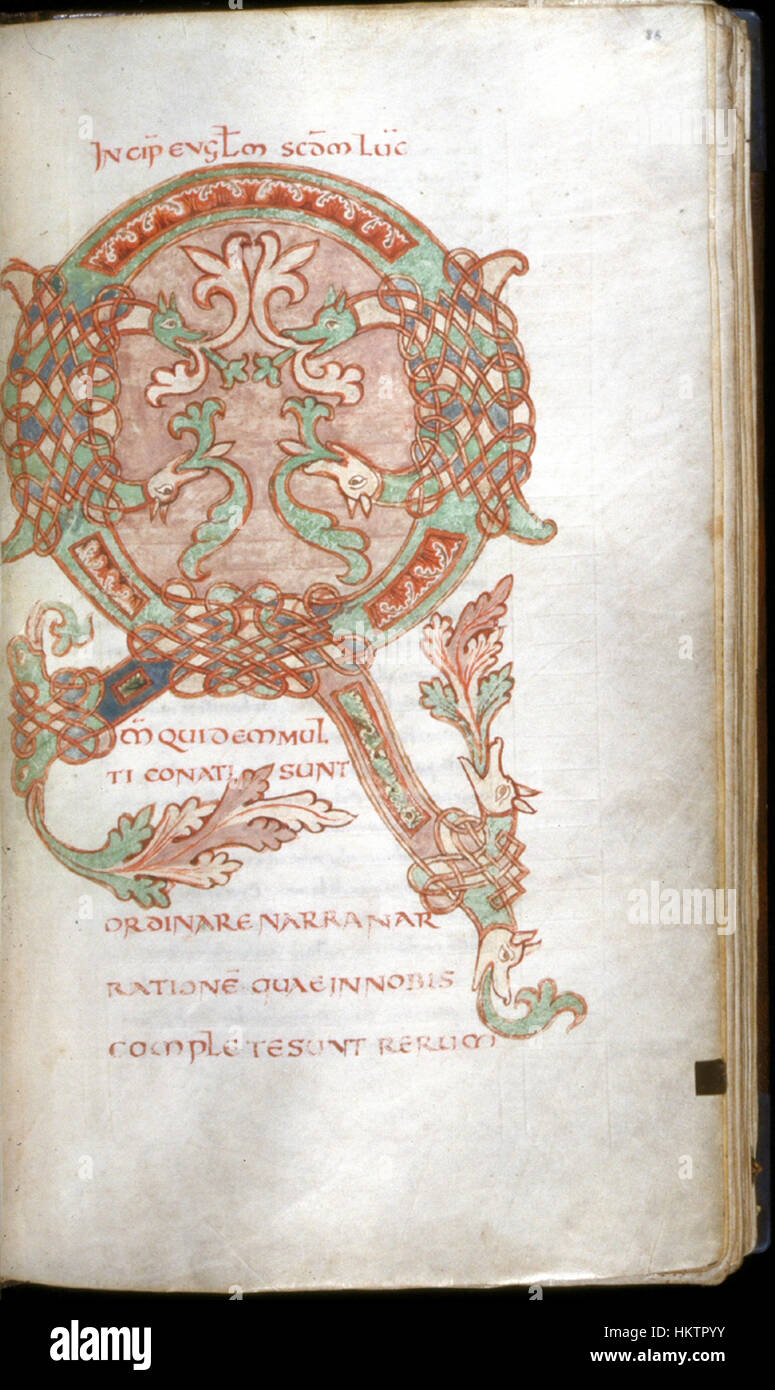 86
INCIP̄ EVGL̄M SCD̄M LUC
Q
M̄ QUIDEM MUL
TI CONATI SUNT
ORDINARE NARRANAR
RATIONĒ QUAE IN NOBIS
COMPLETE SUNT RERUM
a
alamy stock photo
a alamy
Image ID: HKTPYY
www.alamy.com